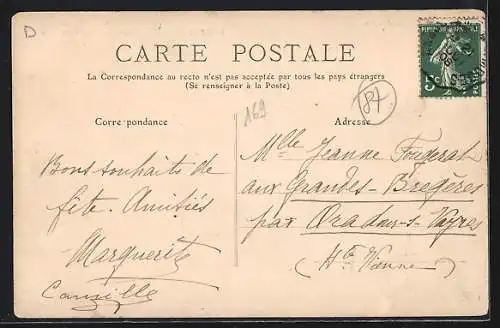 D
CARTE POSTALE
La Correspondance au recto n'est pas acceptée par tous les pays étrangers
(Se renseigner à la Poste)
169
87
Correspondance
Adresse
Bons souhaits de
fête. Amitiés
Marguerite
Camille
Mlle Jeanne Fougerat
aux Grandes-Bregères
par Oradour-s-Vayres
(Hte Vienne)
5c
POSTES